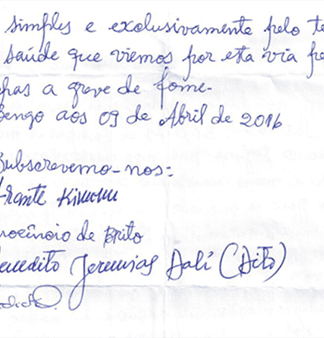 simples e exclusivamente pelo te
saúde que viemos por esta via fe
a greve de fome.
Bengo aos 09 de Abril de 2016
Subscrevemo-nos:
de Brito
Benedito Jeremias Dali (Dito)